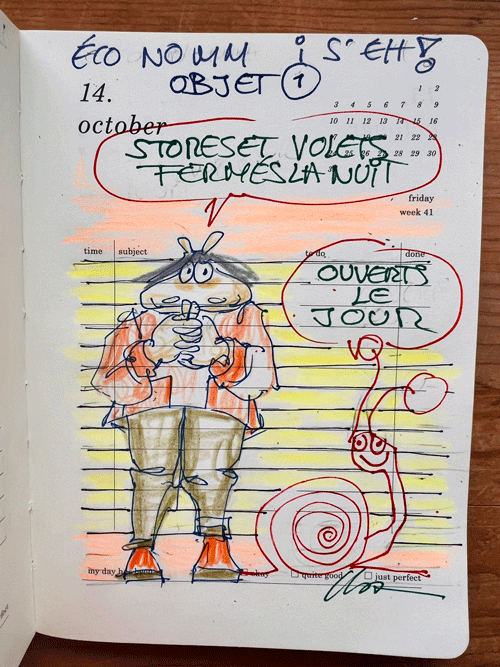 ÉCO NOMM i S'EH!
OBJET 1
14.
october
1 2
3 4 5 6 7 8 9
10 11 12 13 14 15 16
21 22
25 26 28 29 30
friday
week 41
STORES ET VOLETS
FERMÉS LA NUIT
time subject to do done
OUVERTS
LE
JOUR
my day okay quite good just perfect